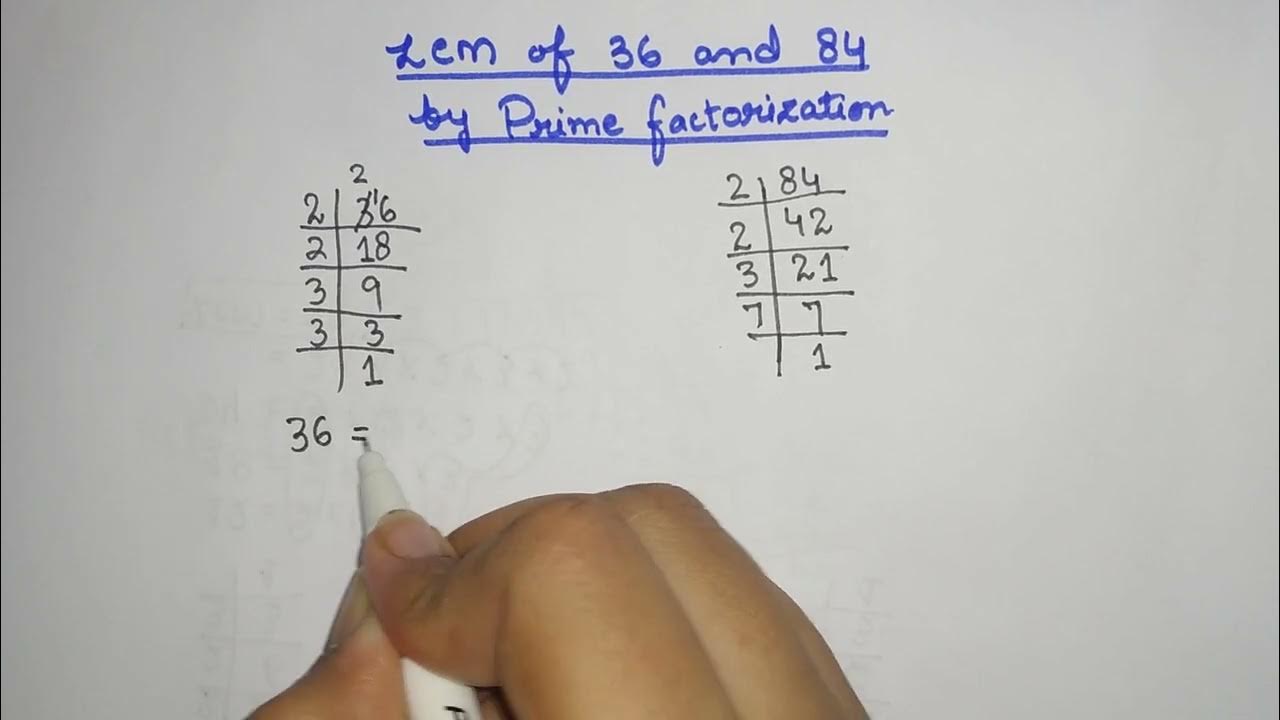 LCM of 36 and 84
by Prime factorization
2
2 36
2 18
3 9
3 3
1
2 84
2 42
3 21
7 7
1
36 =